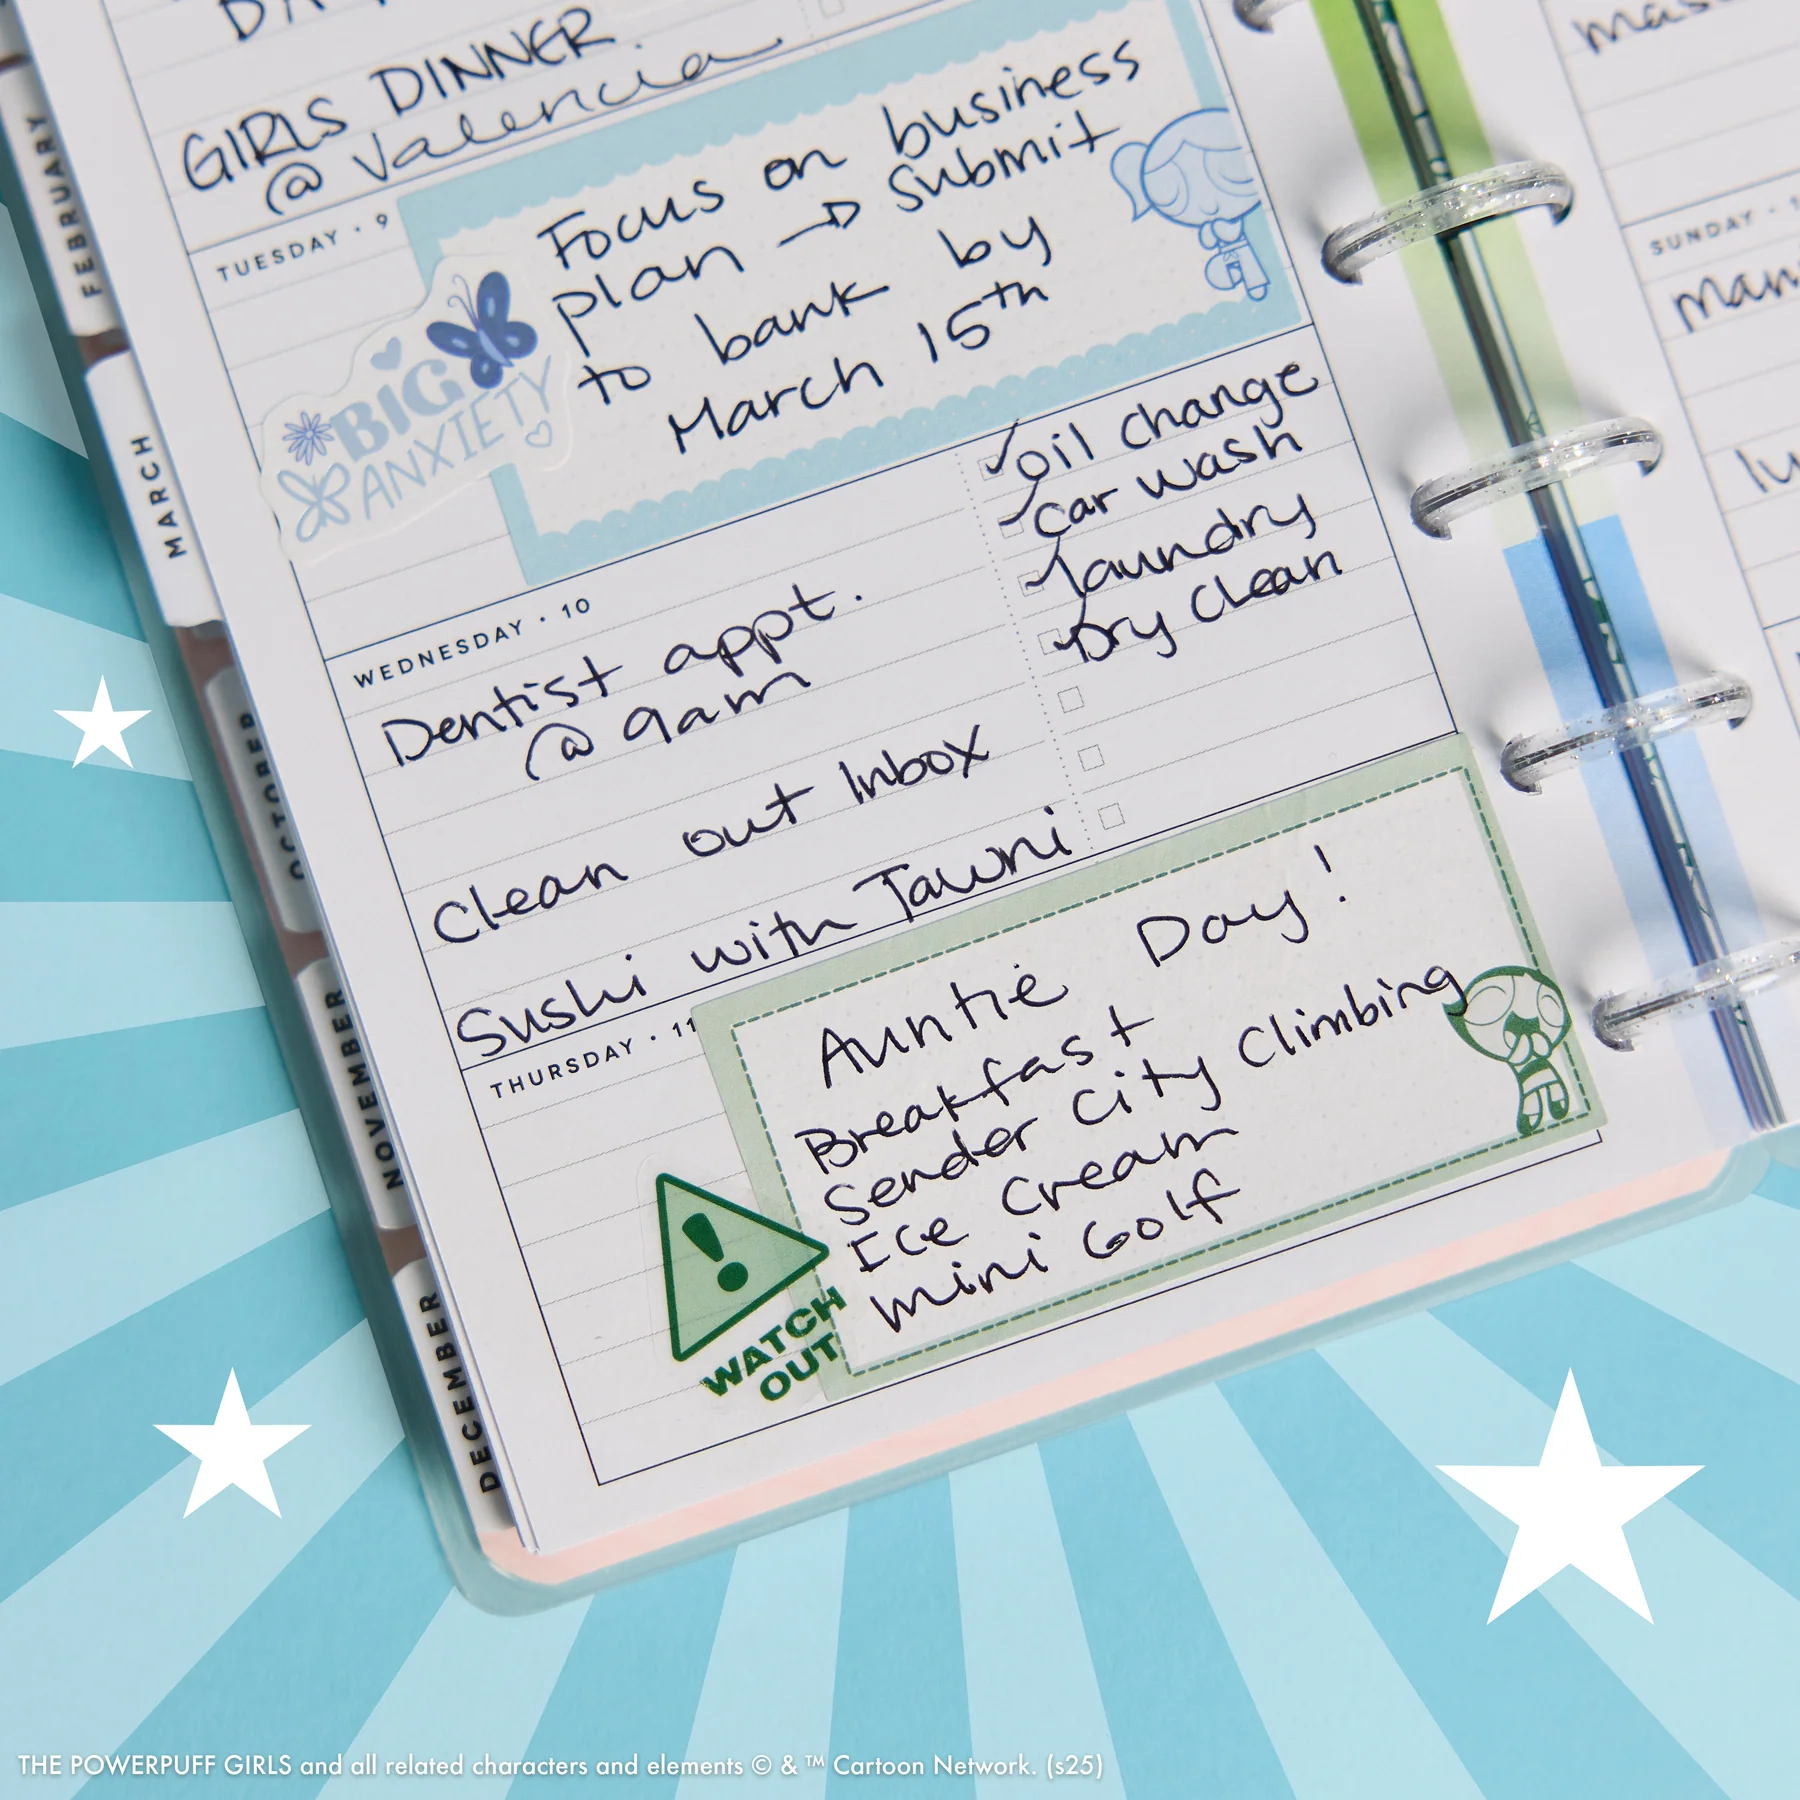 GIRLS DINNER.
@ Valencia
TUESDAY · 9
Focus on business
plan → submit
to bank by
March 15th
BIG
ANXIETY
oil change
car wash
laundry
Dry Clean
WEDNESDAY · 10
Dentist appt.
@ 9am
Clean out Inbox
Sushi with Tawni
THURSDAY · 11
Auntie Day!
Breakfast
Sender City Climbing
Ice Cream
mini Golf
WATCH
OUT
SUNDAY ·
FEBRUARY
MARCH
OCTOBER
NOVEMBER
DECEMBER
THE POWERPUFF GIRLS and all related characters and elements © & ™ Cartoon Network. (s25)